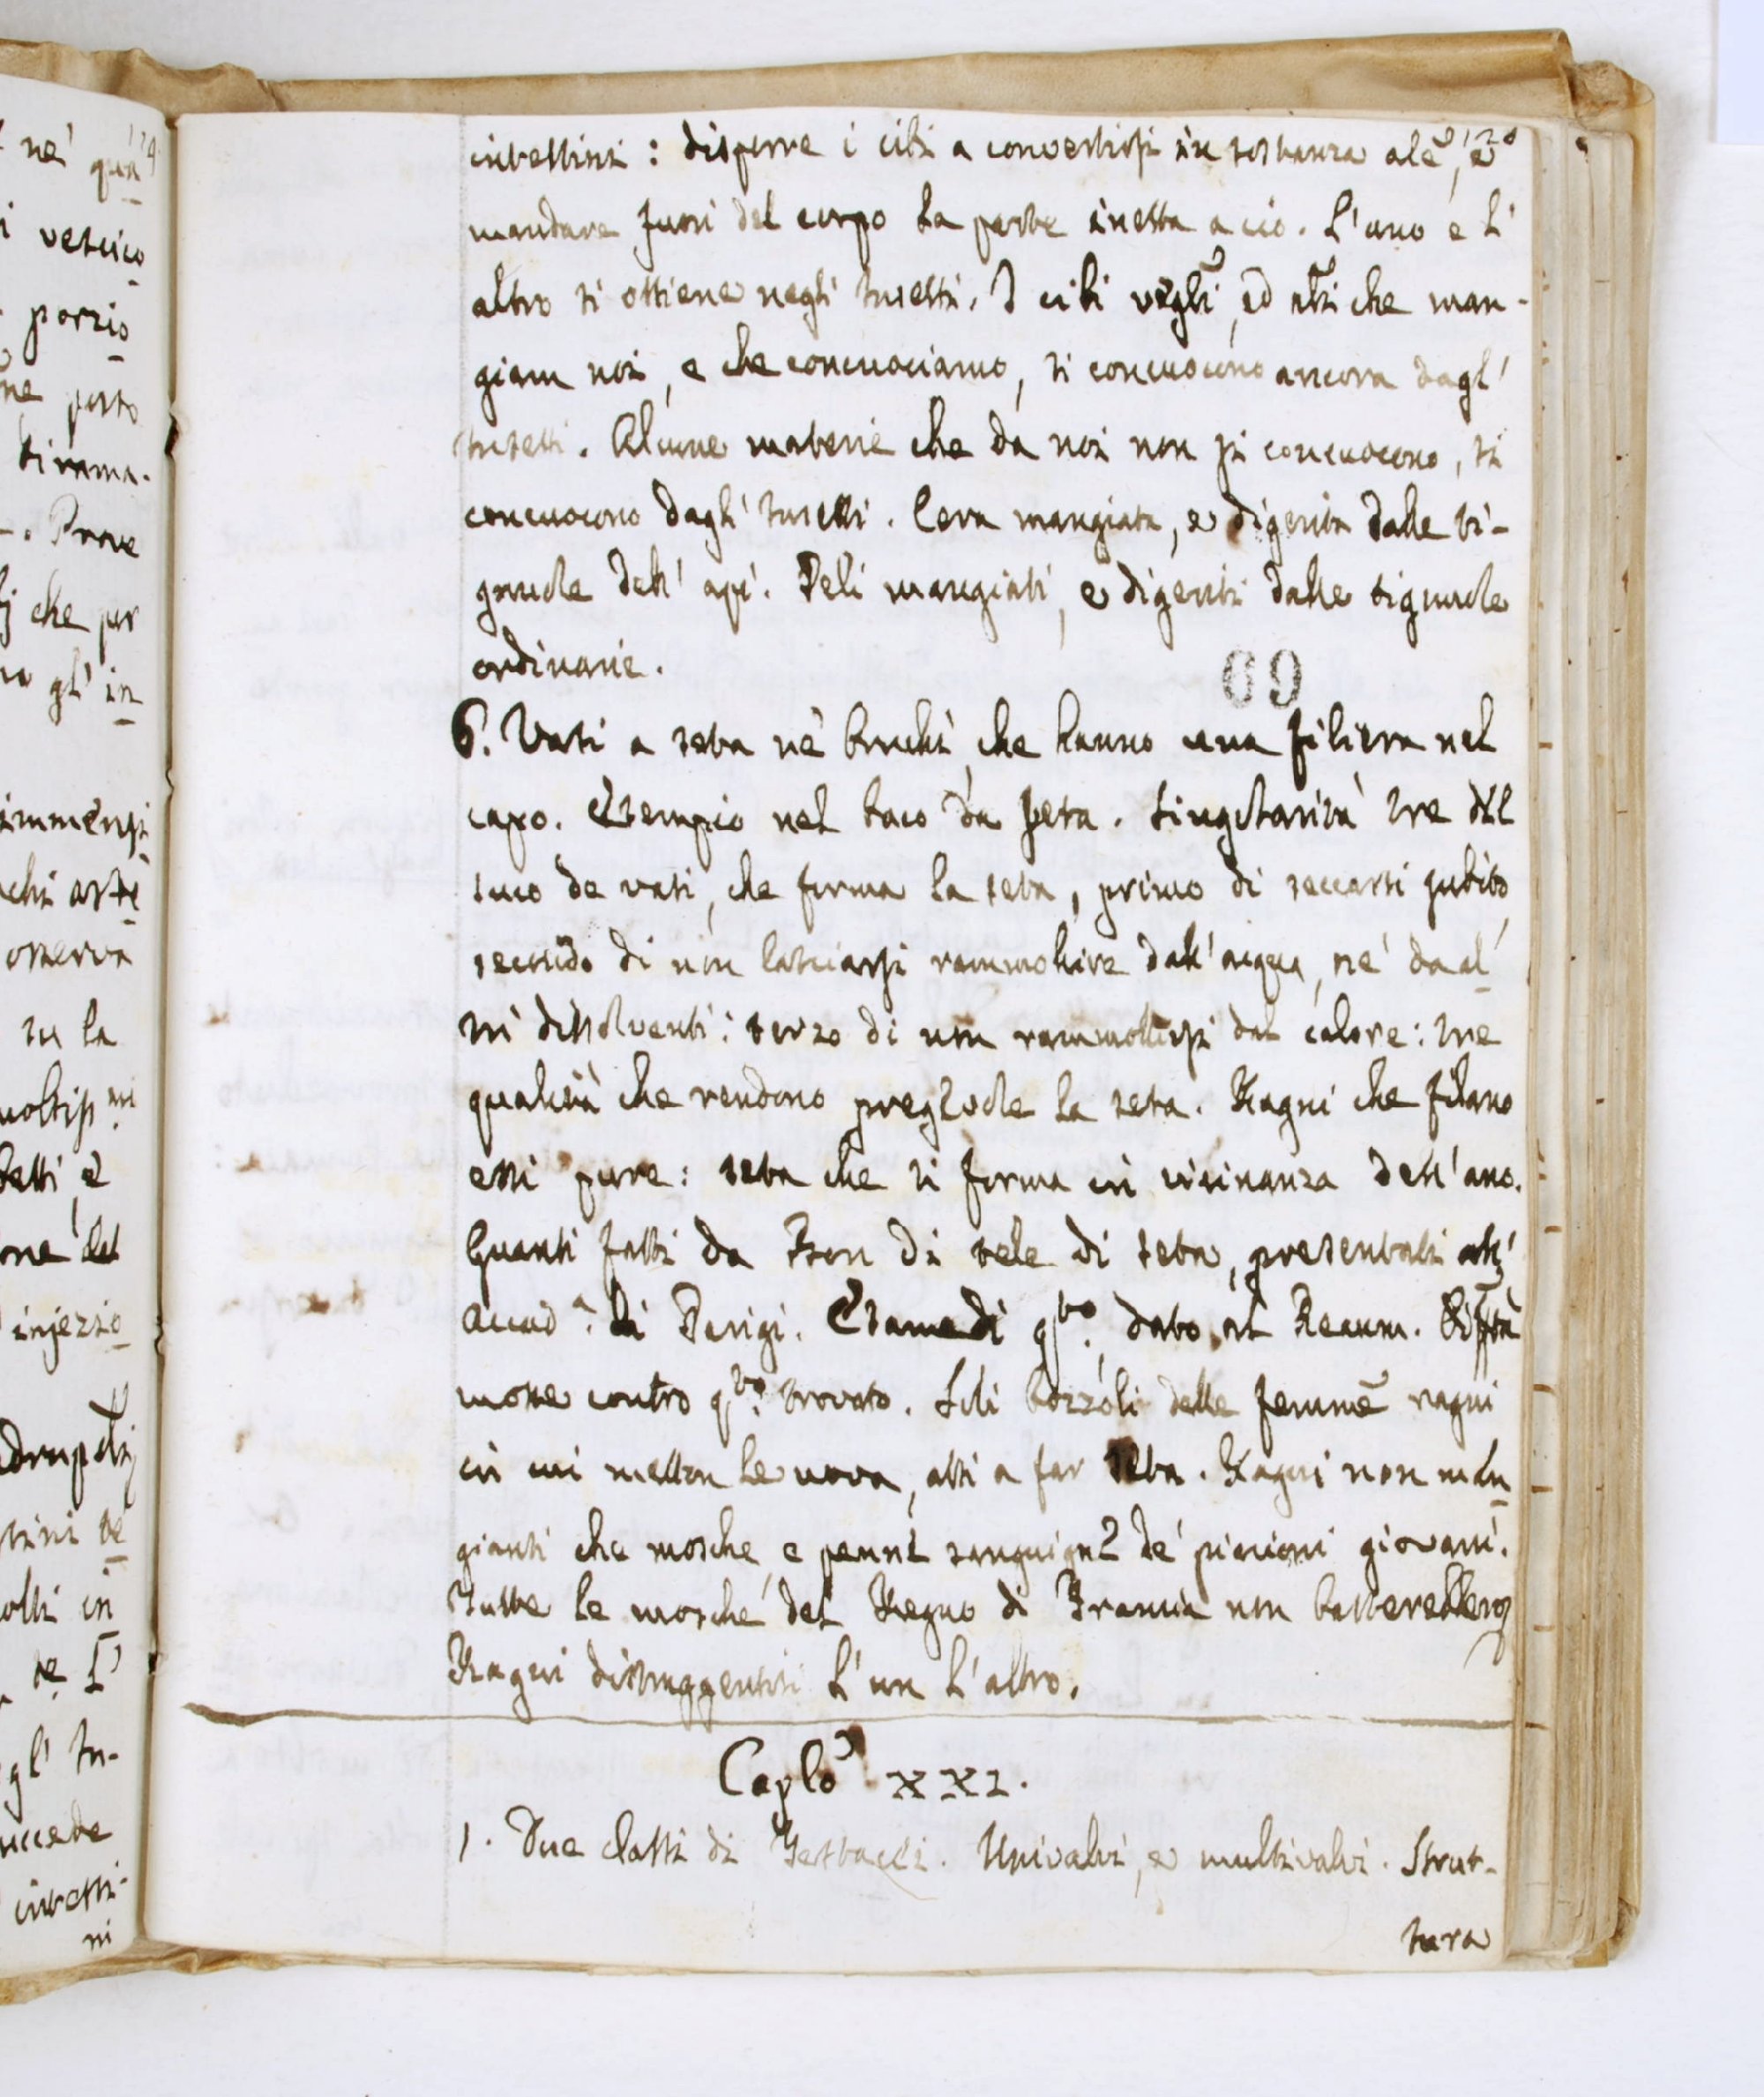 intestini: disporre i cibi a convertirsi in sostanza ale, e
mandare fuori del corpo la parte inetta a ciò. L'uno e l'
altro si ottiene negli Insetti. I cibi vegli, ed alti che man-
giam noi, e che concuociamo, si concuocono ancora dagl'
Insetti. Alcune materie che da noi non si concuocono, si
concuocono dagl' Insetti. Cera mangiata, e digerita dalle ti-
gnuole dell' api. Peli mangiati, e digeriti dalle tignuole
ordinarie.
69
6. Vasi a seta ne' bruchi, che hanno una filiera nel
capo. Esempio nel baco da seta. Singolarità tre del
suco de vasi, che forma la seta, primo di seccarsi subito,
secondo di non lasciarsi rammollire dall'acqua, ne' da al
tri dissolventi: terzo di non rammollirsi dal calore: tre
qualità che rendono pregevole la seta. Ragni che filano
essi pure: seta che si forma in vicinanza dell'ano.
Guanti fatti da Bon di tele di seta, presentati all'
Accad.a di Parigi. Esame di q.to dato al Reaum. Diffà
mosse contro q.to trovato. Soli bozzoli delle femme ragni
in cui metton le uova, atti a far seta. Ragni non man
gianti che mosche, e penne sanguigne de' piccioni giovani.
Tutte le mosche del Regno di Francia non basterebbero
Ragni distruggentisi l'un l'altro.
Caplo XXI.
1. Due classi di Testacei. Univalvi, e multivalvi. Strut-
tura
ne'
vescico
porzio
posto
tirama-
Prove
che per
gl' in
immersi
osserva
su la
injezio
in
succede
intesti-
ni